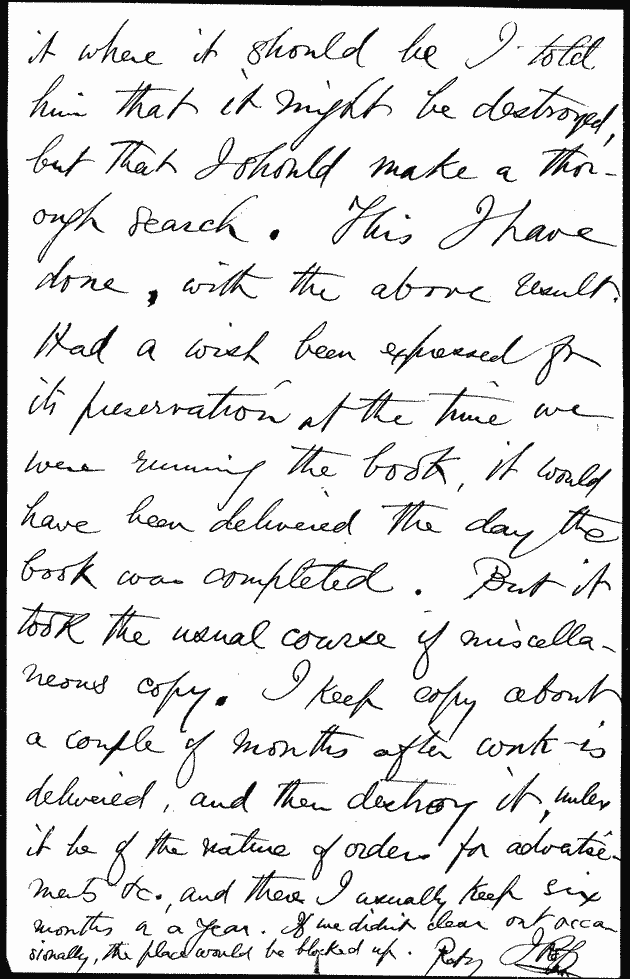 it where it should be I told
him that it might be destroyed,
but that I should make a thor-
ough search. This I have
done, with the above result.
Had a wish been expressed for
its preservation at the time we
were running the book, it would
have been delivered the day the
book was completed. But it
took the usual course of miscella-
neous copy. I keep copy about
a couple of months after work is
delivered, and then destroy it, unless
it be of the nature of orders for advertise-
ments &c., and these I usually keep six
months or a year. If we didn't clear out occa-
sionally, the place would be blocked up.